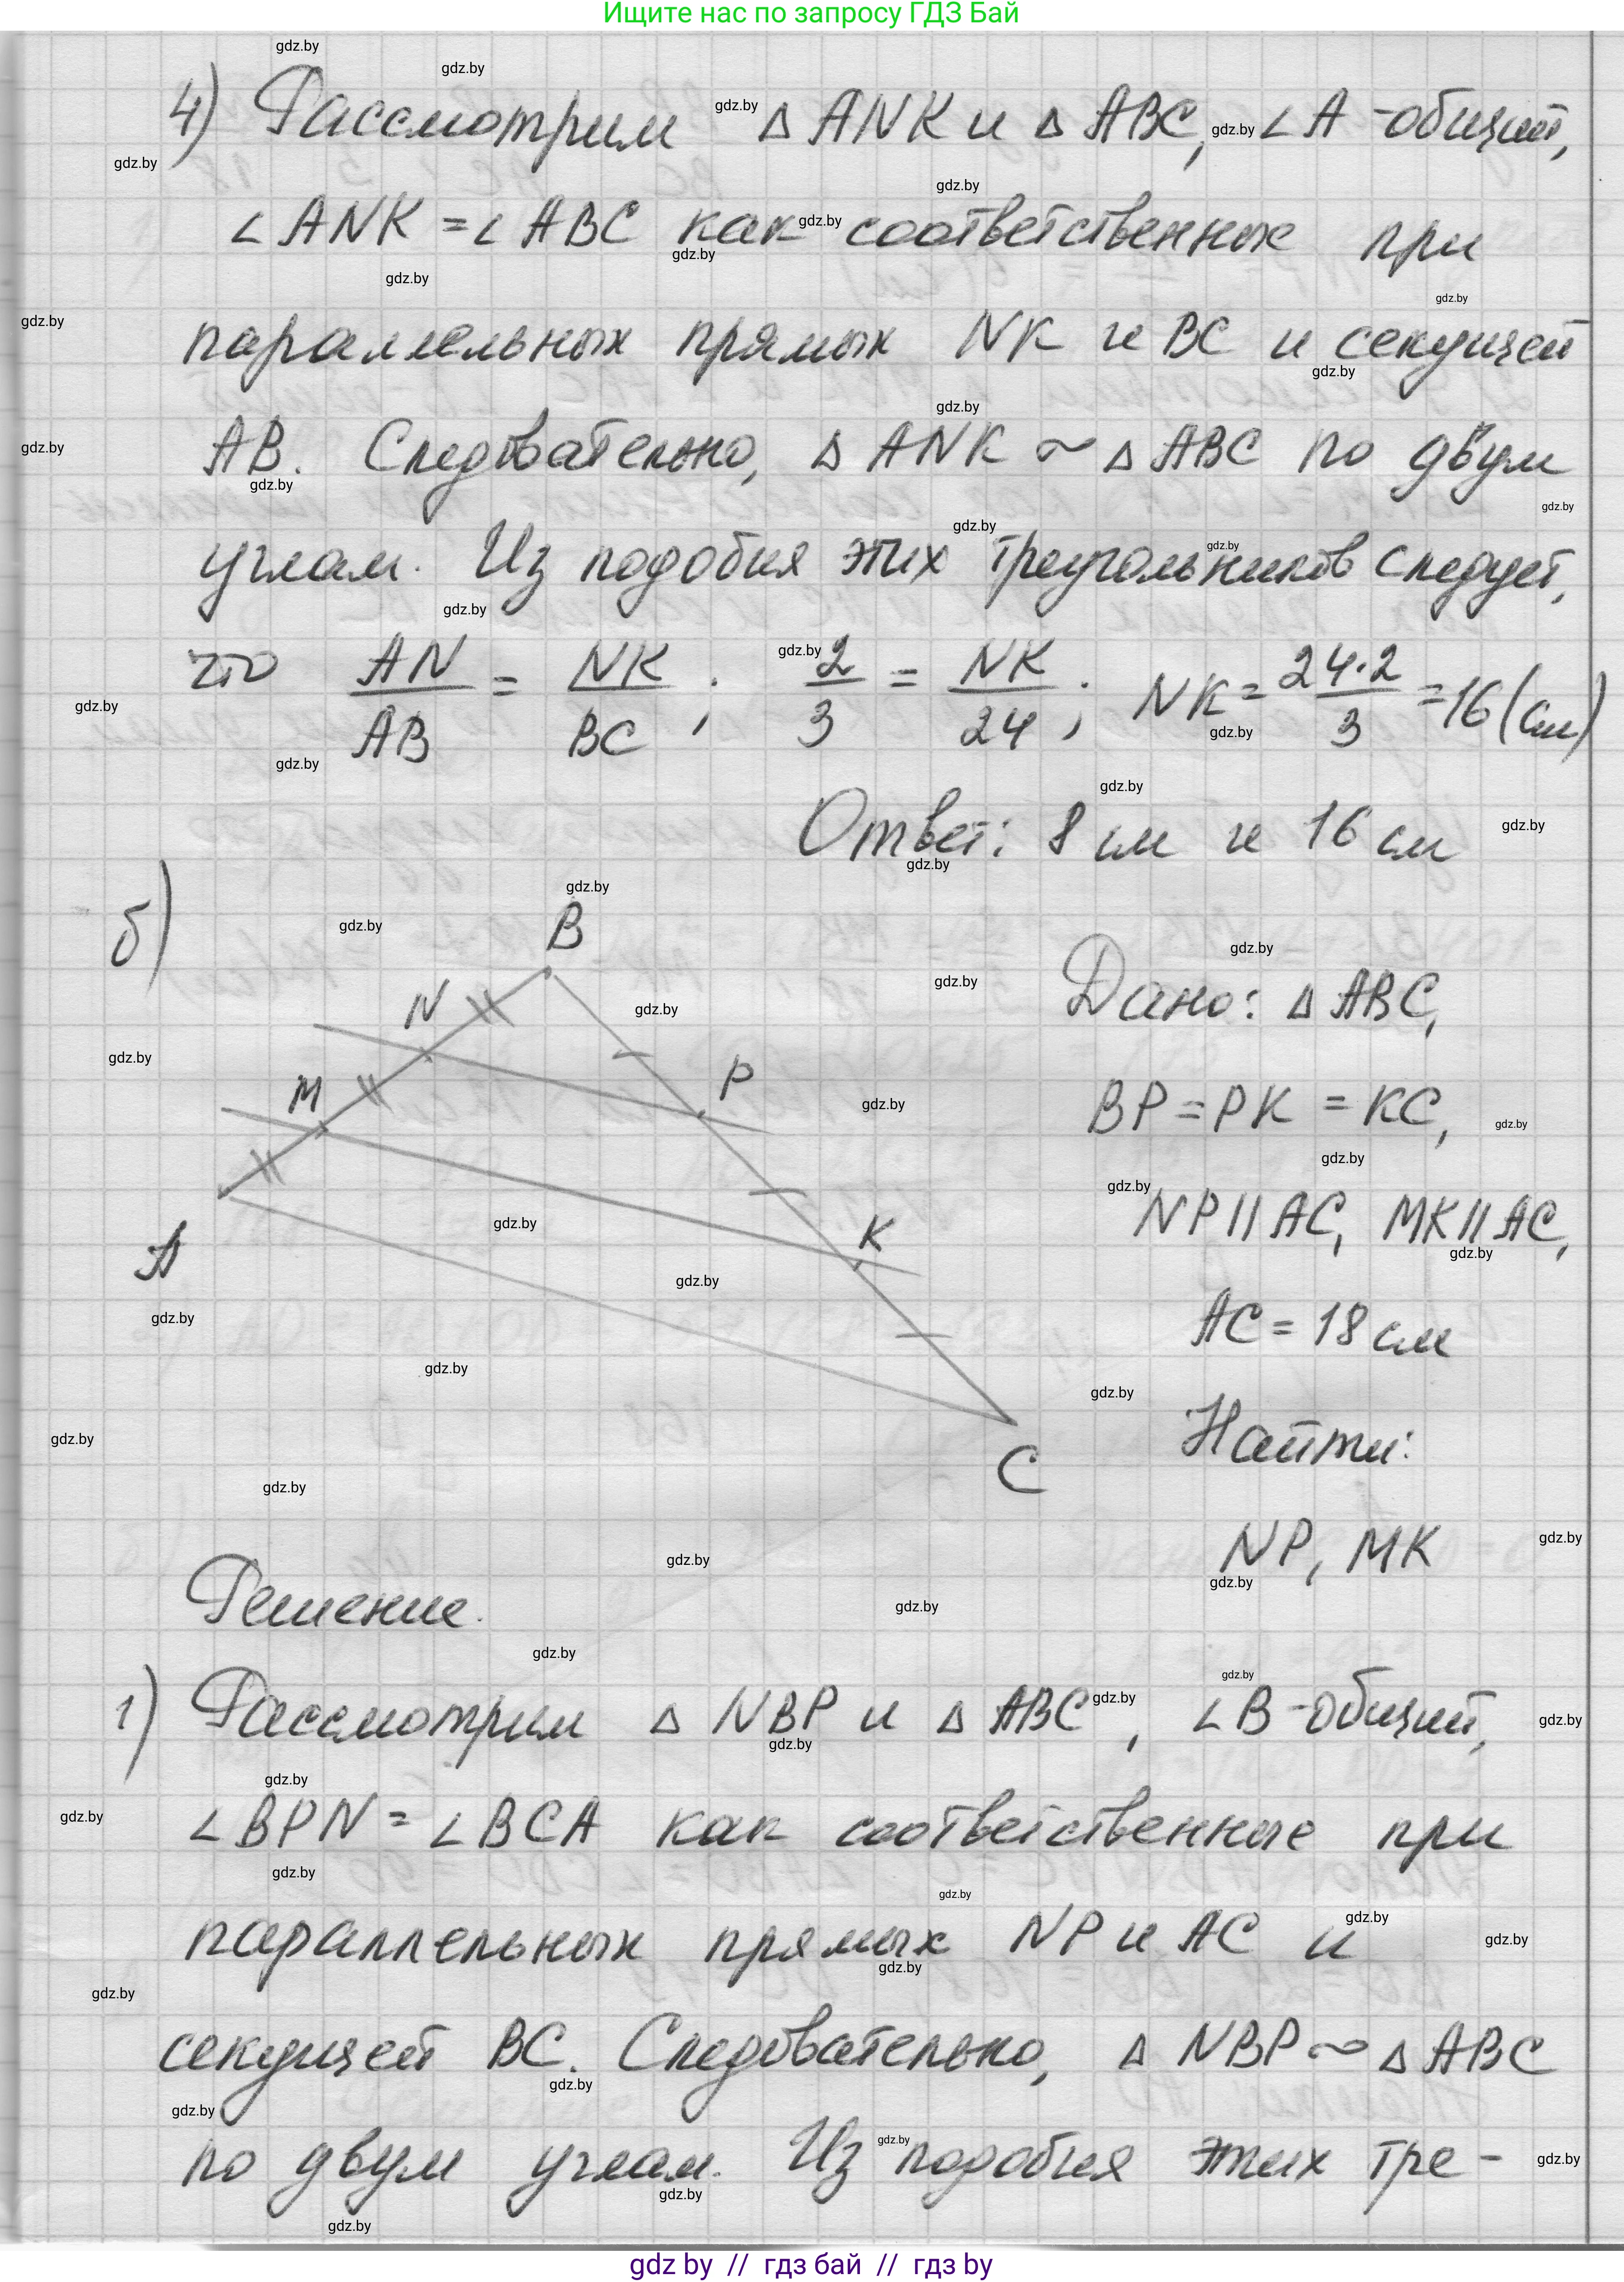 Ищите нас по запросу ГДЗ Бай
4) Рассмотрим △ ANK и △ ABC, ∠A - общий,
∠ANK = ∠ABC как соответственные при
параллельных прямых NK и BC и секущей
AB. Следовательно, △ ANK ~ △ ABC по двум
углам. Из подобия этих треугольников следует,
что AN/AB = NK/BC; 2/3 = NK/24; NK = 24·2/3 = 16 (см)
Ответ: 8 см и 16 см
б)
B
N
M
P
A
K
C
Дано: △ ABC,
BP = PK = KC,
NP || AC, MK || AC,
AC = 18 см
Найти:
NP, MK
Решение.
1) Рассмотрим △ NBP и △ ABC, ∠B - общий,
∠BPN = ∠BCA как соответственные при
параллельных прямых NP и AC и
секущей BC. Следовательно, △ NBP ~ △ ABC
по двум углам. Из подобия этих тре-
gdz by // гдз бай // гдз by
gdz.by